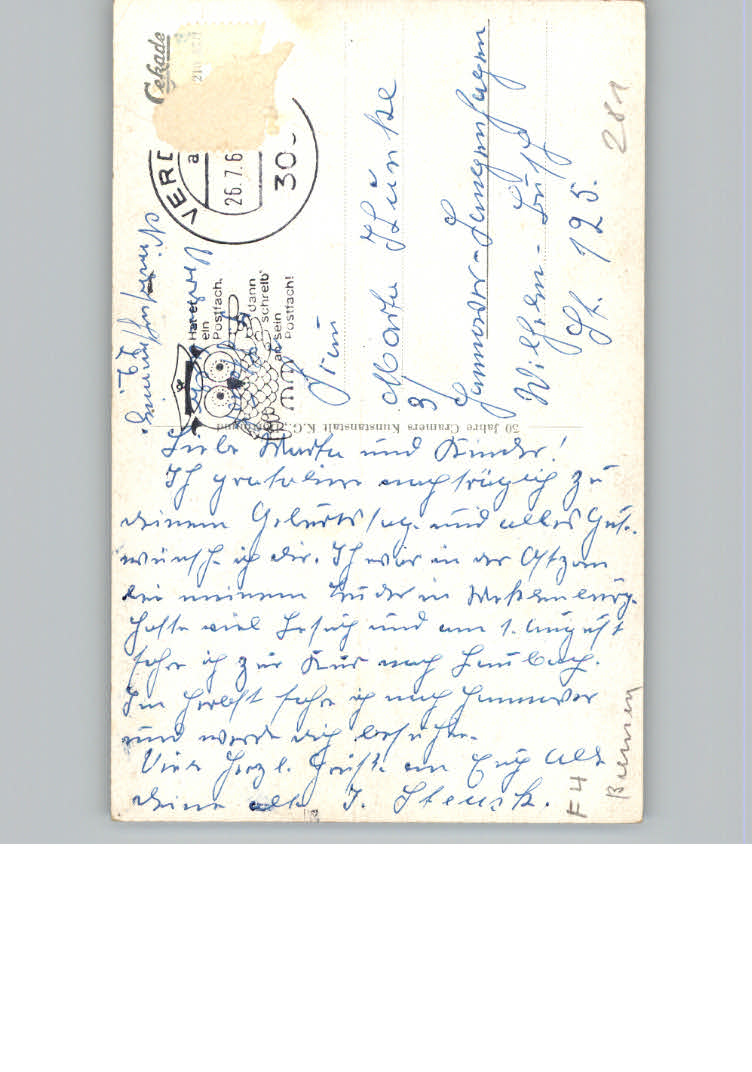 Cekade
VERD
a
26.7.6
30
Hat er
ein
Postfach,
dann
schreib'
an sein
Postfach!
Frau
Marta
3/
Hannover-Langenhagen
Wilhelm-Busch
St. 125.
281
50 Jahre Cramers Kunstanstalt K.G.,
Liebe Marta und Kinder!
Ich gratuliere nachträglich zu
deinem Geburtstag. und alles Gute.
wünsche ich dir. Ich war in der Ostzone
bei meinem Bruder in Meklenburg.
Hatte viel Besuch und am 1. August
fahre ich zur Kur nach Laubach.
Im Herbst fahre ich nach Hannover
und werde dich besuchen.
Viele herzl. Grüße an Euch Alle
deine alte J.
F4
Bremen